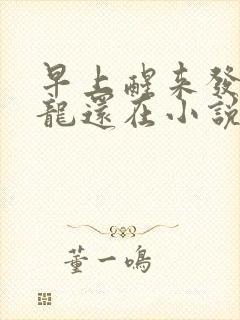 早上醒来發
龍還在小說
董一鳴